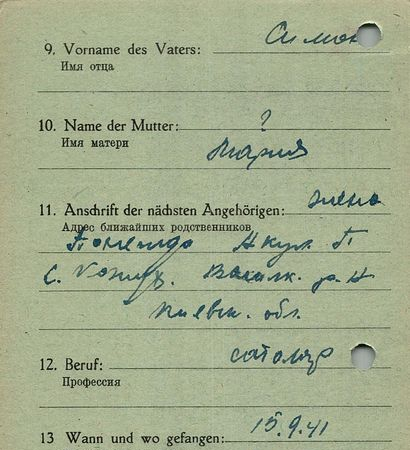 9. Vorname des Vaters: Симон
Имя отца
10. Name der Mutter: ?
Имя матери Мария
11. Anschrift der nächsten Angehörigen: жена
Адрес ближайших родственников
Акул. П
с. Васильк. р-н
Киевск. обл.
12. Beruf:
Профессия
13 Wann und wo gefangen: 15.9.41